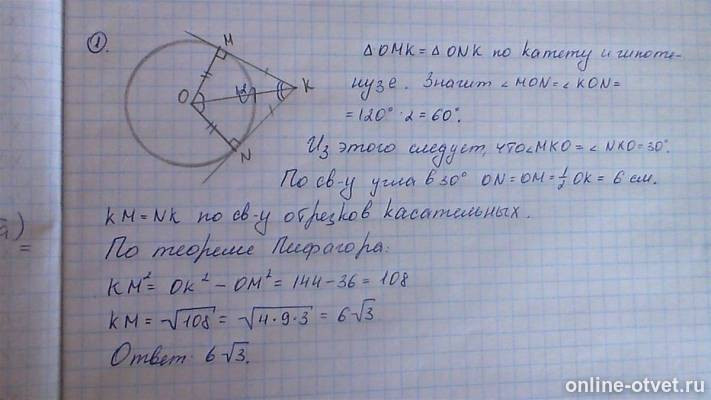 1.
M
O
12
K
N
△OMK = △ONK по катету и гипоте-
нузе. Значит ∠MON = ∠KON =
= 120° · 2 = 60°.
Из этого следует, что ∠MKO = ∠NKO = 30°.
По св-у угла в 30° ON = OM = ½ OK = 6 см.
KM = NK по св-у отрезков касательных.
а)
=
По теореме Пифагора:
KM² = OK² - OM² = 144 - 36 = 108
KM = √108 = √4·9·3 = 6√3
Ответ: 6√3.
online-otvet.ru